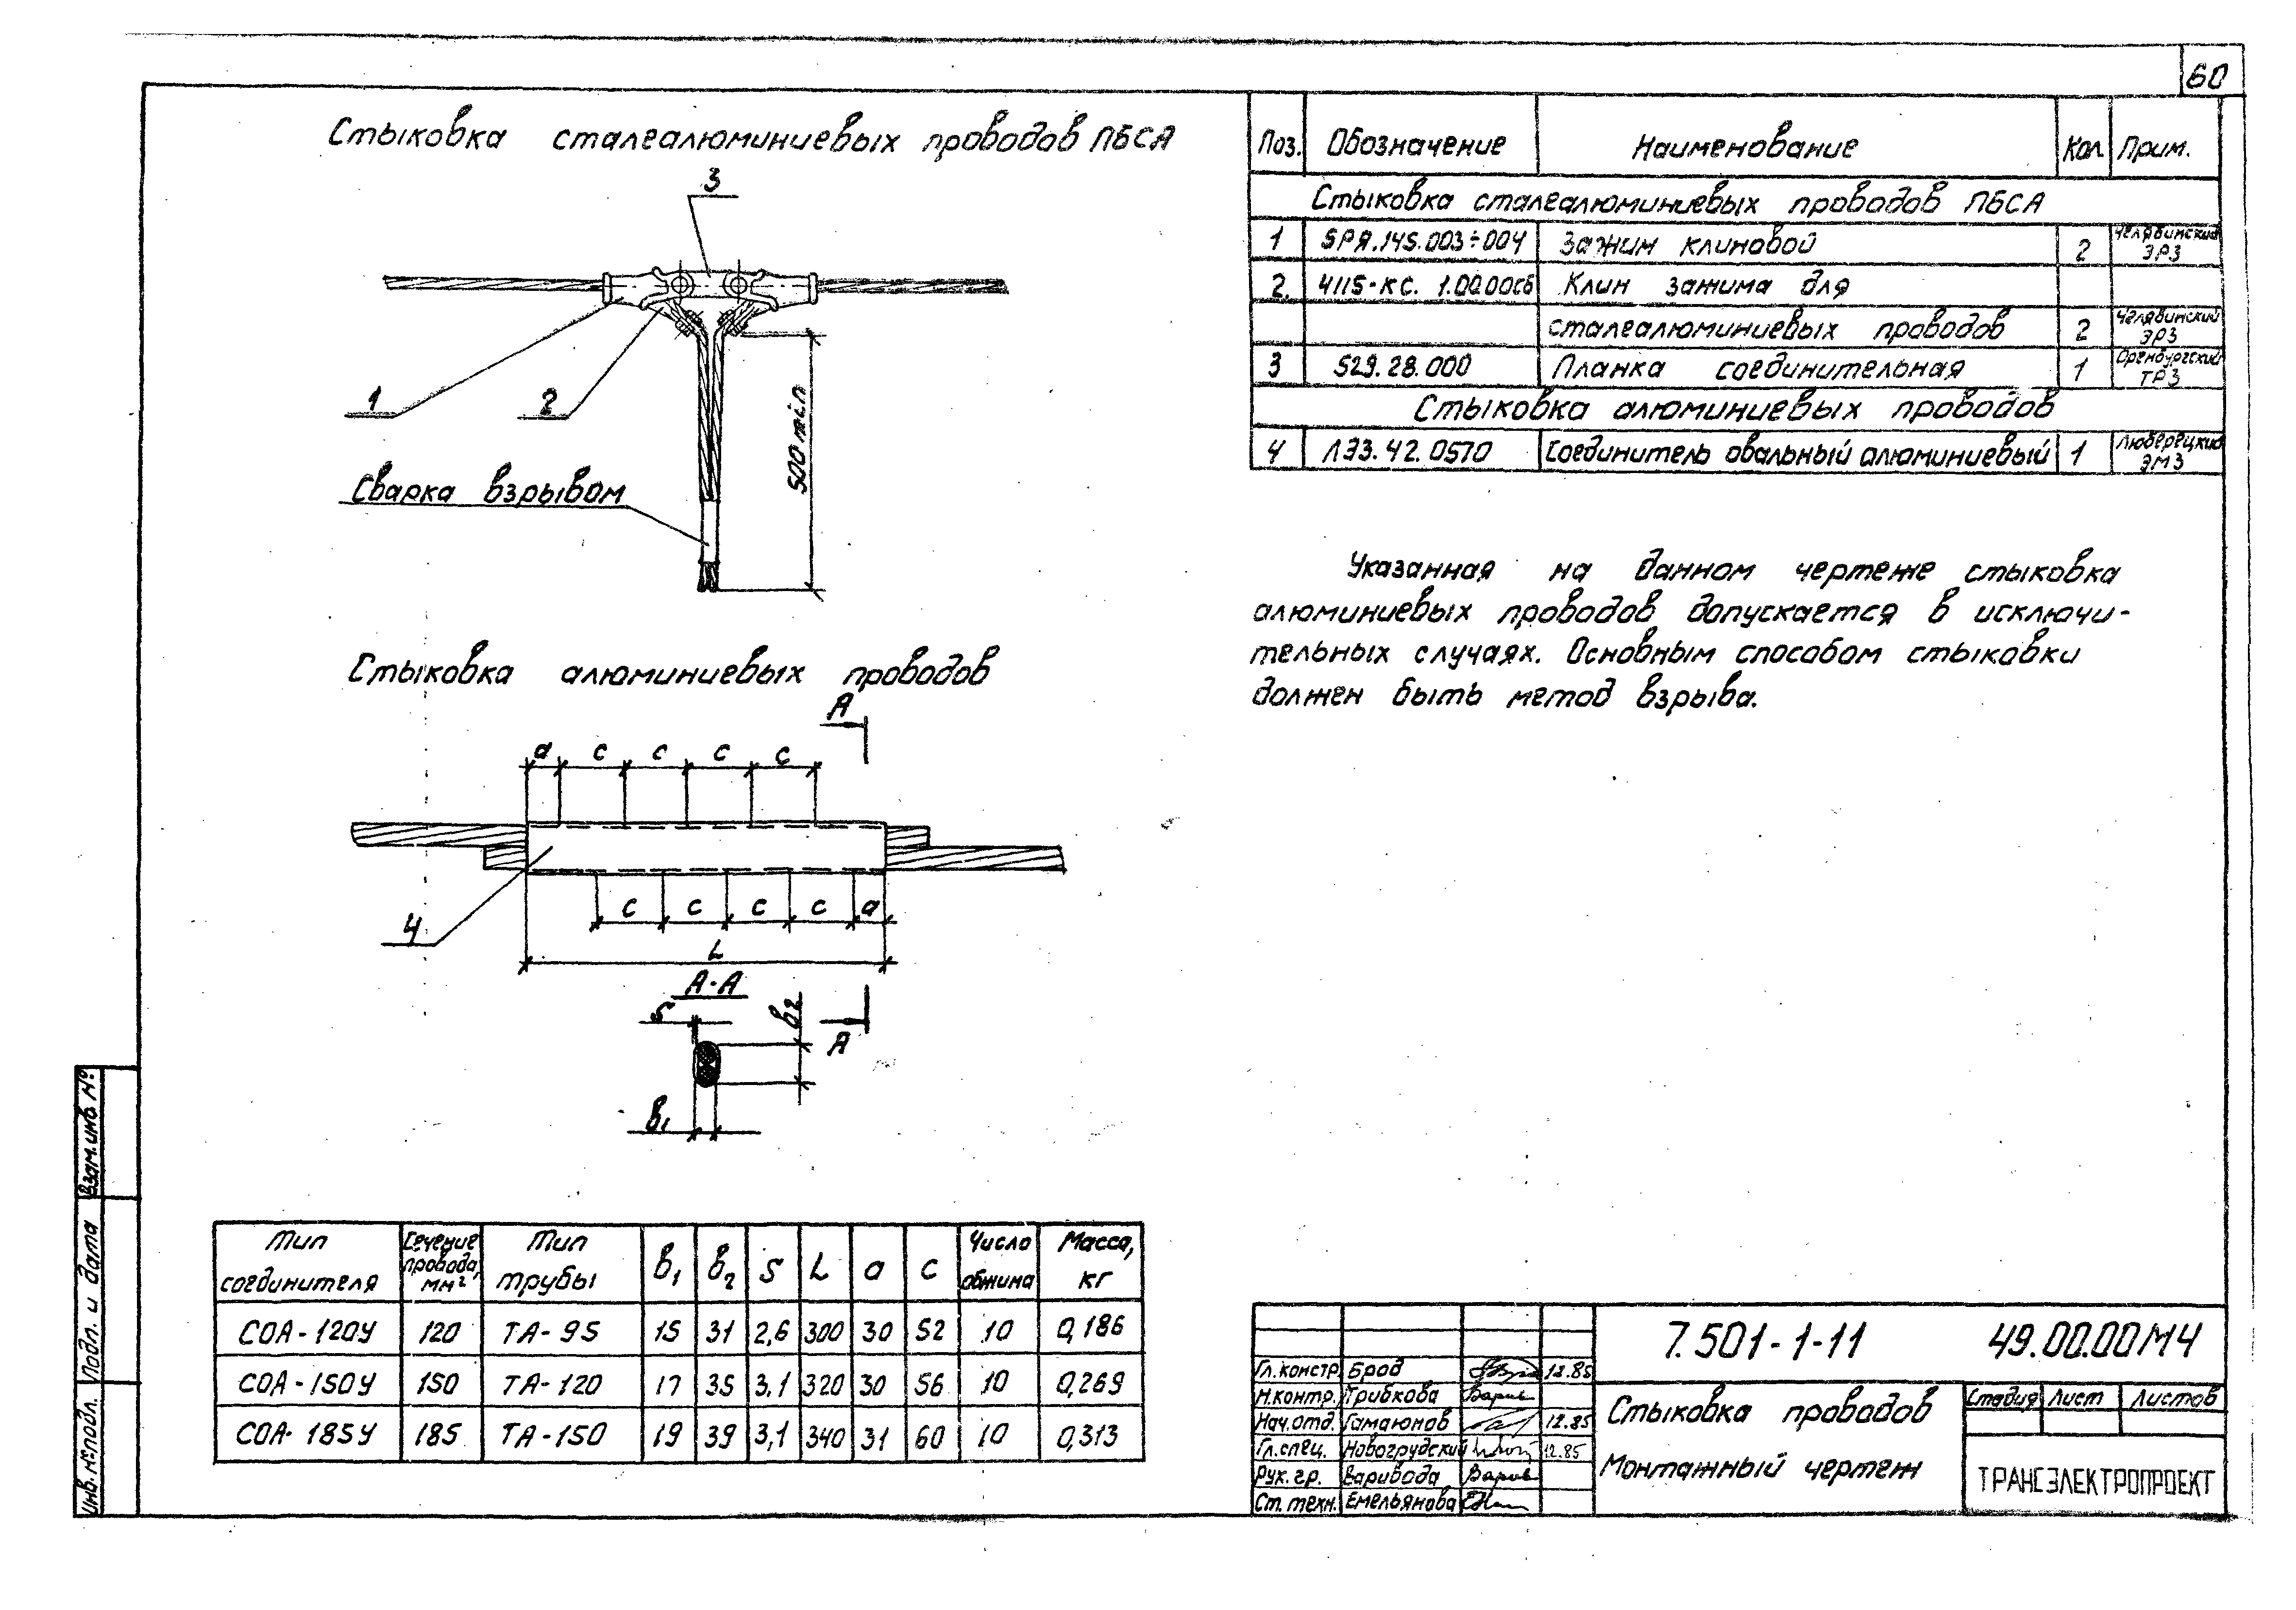 60
Стыковка сталеалюминиевых проводов ПБСА
3
1
2
500 min
Сварка взрывом
Стыковка алюминиевых проводов
А
а с с с с
4
с с с с а
L
А-А
S
в2
А
в1
Тип соединителя Сечение провода, мм² Тип трубы в1 в2 S L а с Число обжима Масса, кг
СОА-120У 120 ТА-95 15 31 2,6 300 30 52 10 0,186
СОА-150У 150 ТА-120 17 35 3,1 320 30 56 10 0,269
СОА-185У 185 ТА-150 19 39 3,1 340 31 60 10 0,313
Поз. Обозначение Наименование Кол Прим.
Стыковка сталеалюминиевых проводов ПБСА
1 5РЯ.145.003÷004 Зажим клиновой 2 Челябинский ЭРЗ
2. 4115-КС. 1.00.00сб Клин зажима для
сталеалюминиевых проводов 2 Челябинский ЭРЗ
3 529.28.000 Планка соединительная 1 Оренбургский ТРЗ
Стыковка алюминиевых проводов
4 ЛЭЗ.42.0570 Соединитель овальный алюминиевый 1 Люберецкий ЭМЗ
Указанная на данном чертеже стыковка
алюминиевых проводов допускается в исключи-
тельных случаях. Основным способом стыковки
должен быть метод взрыва.
7.501-1-11 49.00.00МЧ
Гл. констр. Брод 12.85
Н.контр. Грибкова
Нач.отд. Гамаюнов 12.85
Гл.спец. Новогрудский 12.85
Рук.гр. Варивода
Ст. техн. Емельянова
Стыковка проводов
Монтажный чертеж
Стадия Лист Листов
ТРАНСЭЛЕКТРОПРОЕКТ
Взам.инв №
Подп. и дата
Инв.№подл.